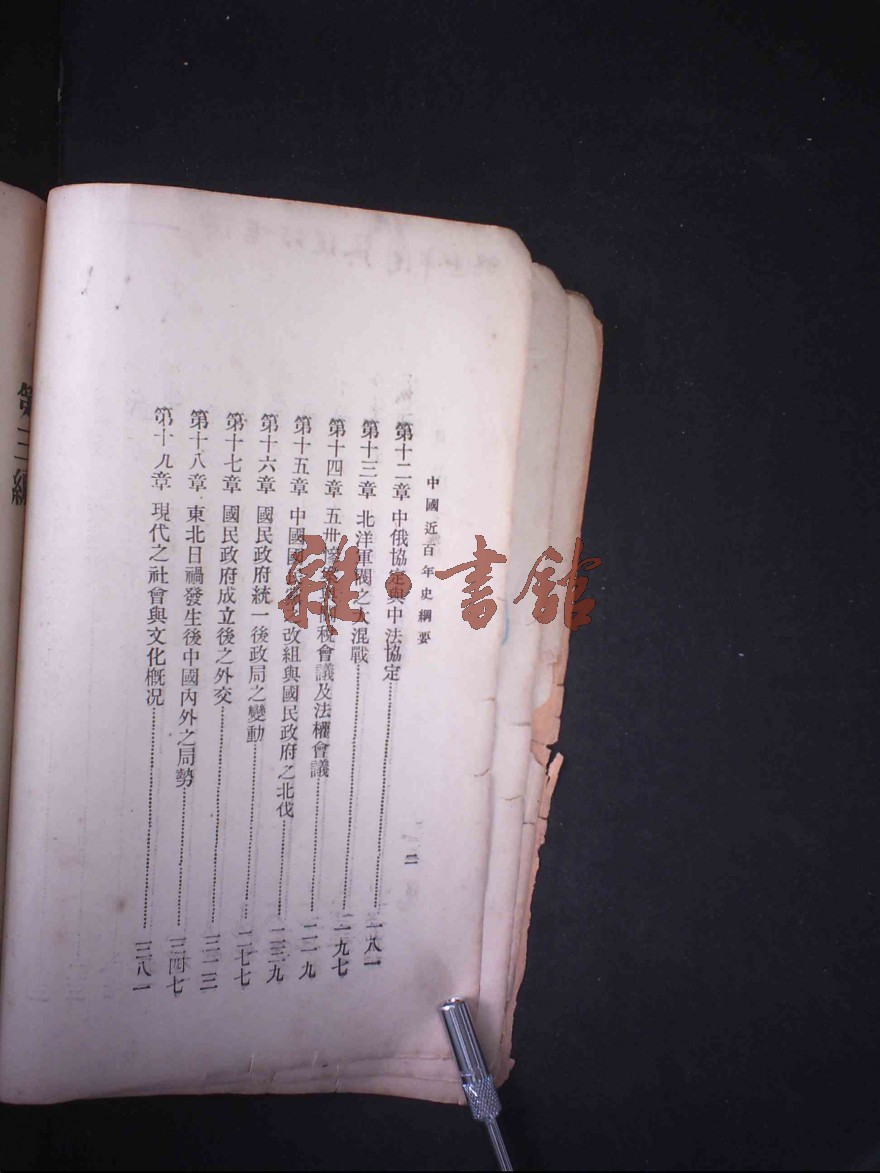 中國近百年史綱要 二
第十二章 中俄協定與中法協定……一八一
第十三章 北洋軍閥之大混戰……一九七
第十四章 五卅慘案與關稅會議及法權會議……二一九
第十五章 中國國民黨改組與國民政府之北伐……二三九
第十六章 國民政府統一後政局之變動……二七七
第十七章 國民政府成立後之外交……三一三
第十八章 東北日禍發生後中國內外之局勢……三四七
第十九章 現代之社會與文化概況……三八一
第三編
雜·書館